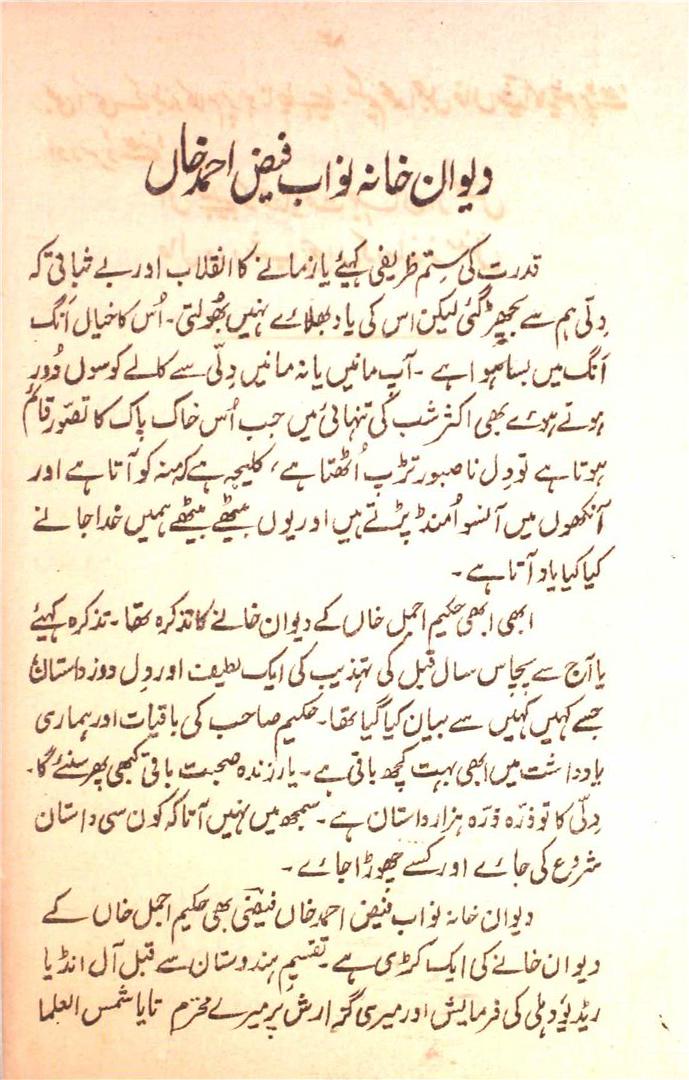 دیوان خانہ نواب فیض احمد خاں
قدرت کی ستم ظریفی کہیئے یا زمانے کا انقلاب اور بے ثباتی کہ
دِلّی ہم سے بچھڑ گئی لیکن اس کی یاد بھلائے نہیں بھُولتی۔ اُس کا خیال اَنگ
اَنگ میں بسا ہوا ہے ۔ آپ مانیں یا نہ مانیں دِلّی سے کالے کوسوں دُور
ہوتے ہوئے بھی اکثر شب کی تنہائی میں جب اُس خاک پاک کا تصوّر قائم
ہوتا ہے تو دِل ناصبور تڑپ اُٹھتا ہے، کلیجہ ہے کہ منہ کو آتا ہے اور
آنکھوں میں آنسو اُمنڈ پڑتے ہیں اور یوں بیٹھے بیٹھے ہمیں خدا جانے
کیا کیا یاد آتا ہے ۔
ابھی ابھی حکیم اجمل خاں کے دیوان خانے کا تذکرہ تھا۔ تذکرہ کہیئے
یا آج سے پچاس سال قبل کی تہذیب کی ایک لطیف اور دِل دوز داستان
جسے کہیں کہیں سے بیان کیا گیا تھا۔ حکیم صاحب کی باقیات اور ہماری
یادداشت میں ابھی بہت کچھ باقی ہے ۔ یار زندہ صحبت باقی کبھی پھر سنئے گا۔
دِلّی کا تو ذرّہ ذرّہ ہزار داستان ہے ۔ سمجھ میں نہیں آتا کہ کون سی داستان
شروع کی جائے اور کسے چھوڑا جائے ۔
دیوان خانہ نواب فیض احمد خاں فیضیؔ بھی حکیم اجمل خاں کے
دیوان خانے کی ایک کڑی ہے ۔ تقسیمِ ہندوستان سے قبل آل انڈیا
ریڈیو دہلی کی فرمایش اور میری گزارش پر میرے محترم تایا شمس العلما